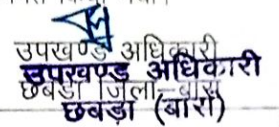 उपखण्ड अधिकारी
उपखण्ड अधिकारी
छबडा जिला-बारां
छबड़ा (बारां)